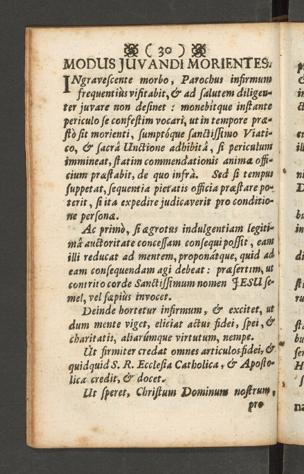 ( 30 )
MODUS JUVANDI MORIENTES.
INgravescente morbo, Parochus infirmum
frequentiùs visitabit, & ad salutem diligen-
ter juvare non desinet : monebitque instante
periculo se confestim vocari, ut in tempore præ-
stò sit morienti, sumptóque sanctissimo Viati-
co, & sacrâ Unctione adhibitâ, si periculum
immineat, statim commendationis animæ offi-
cium præstabit, de quo infrà. Sed si tempus
suppetat, sequentia pietatis officia præstare po-
terit, si ita expedire judicaverit pro conditio-
ne personæ.
Ac primò, si ægrotus indulgentiam legiti-
mâ auctoritate concessam consequi possit, eam
illi reducat ad mentem, proponatque, quid ad
eam consequendam agi debeat : præsertim, ut
contrito corde Sanctissimum nomen JESU se-
mel, vel sæpius invocet.
Deinde hortetur infirmum, & excitet, ut
dum mente viget, eliciat actus fidei, spei, &
charitatis, aliarúmque virtutum, nempe.
Ut firmiter credat omnes articulos fidei, &
quidquid S. R. Ecclesia Catholica, & Aposto-
lica credit, & docet.
Ut speret, Christum Dominum nostrum,
pro